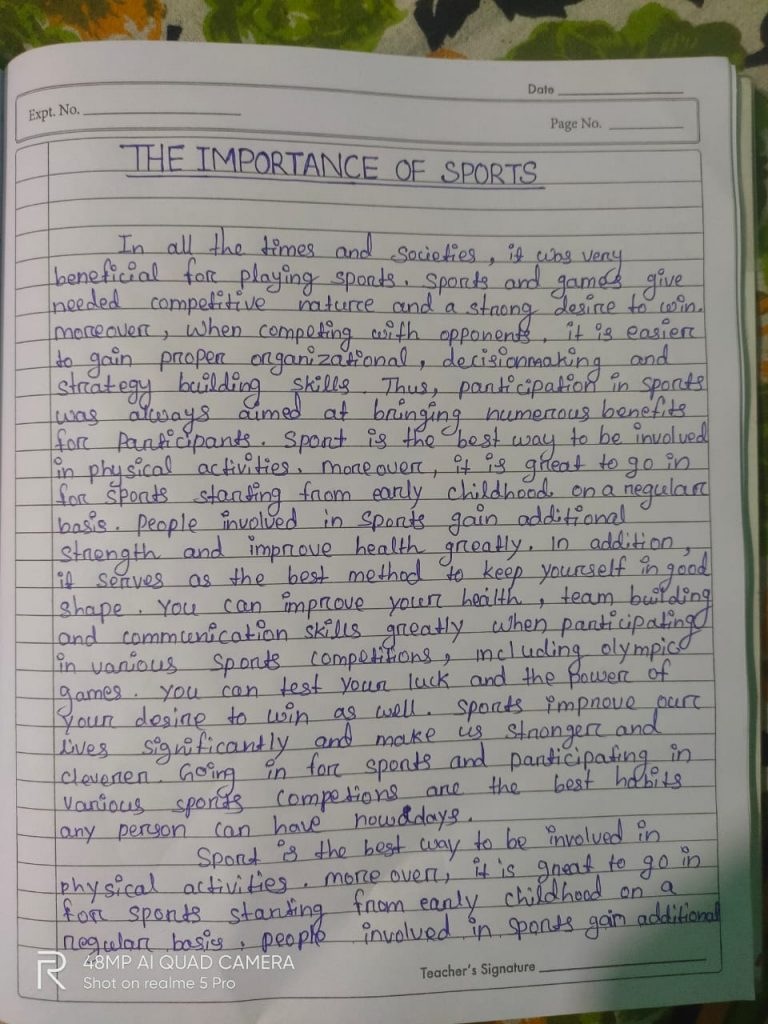 Date
Expt. No.
Page No.
THE IMPORTANCE OF SPORTS
In all the times and societies, it was very
beneficial for playing sports. Sports and games give
needed competitive nature and a strong desire to win.
moreover, when competing with opponents, it is easier
to gain proper organizational, decisionmaking and
strategy building skills. Thus, participation in sports
was always aimed at bringing numerous benefits
for Participants. Sport is the best way to be involved
in physical activities. moreover, it is great to go in
for sports starting from early childhood on a regular
basis. people involved in sports gain additional
strength and improve health greatly. In addition,
it serves as the best method to keep yourself in good
shape. You can improve your health, team building
and communication skills greatly when participating
in various sports competitions, including olympic
games. You can test your luck and the power of
your desire to win as well. sports improve our
lives significantly and make us stronger and
cleverer. Going in for sports and participating in
various sports competions are the best habits
any person can have nowadays.
Sport is the best way to be involved in
physical activities. more over, it is great to go in
for sports starting from early childhood on a
regular basis, people involved in sports gain additional
R 48MP AI QUAD CAMERA
Shot on realme 5 Pro
Teacher's Signature